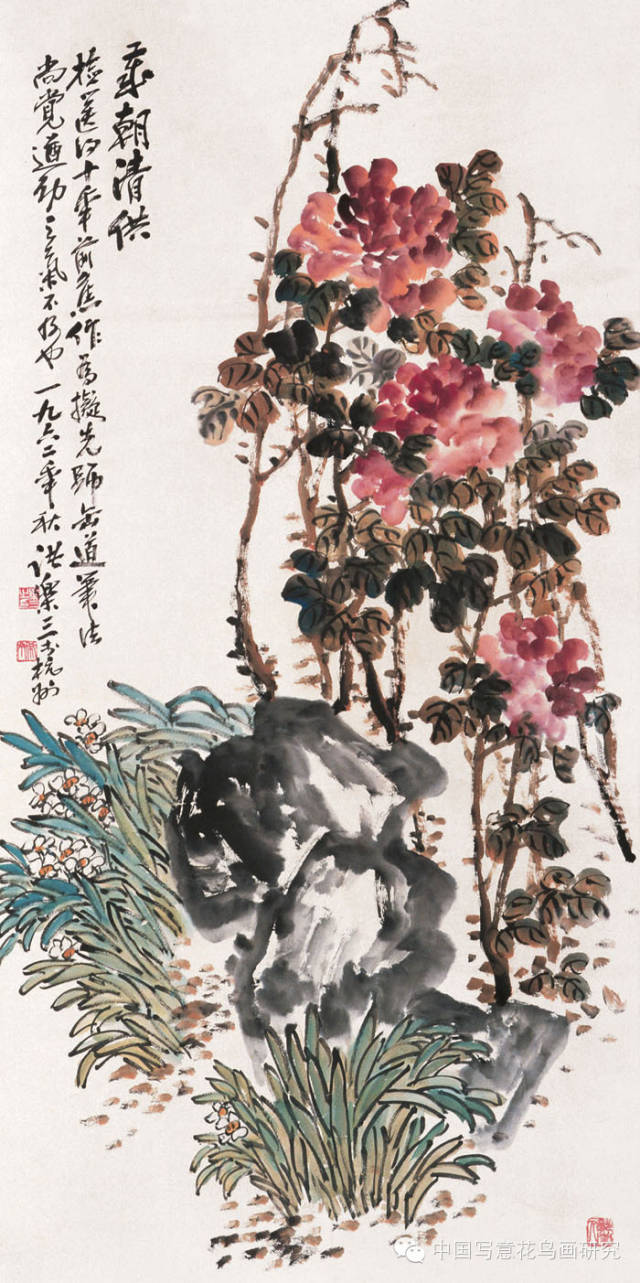 歲朝清供
檢篋得十年前舊作為擬先師缶道筆法
尚覺遒勁之氣不也一九六二年秋諸樂三於杭州
中国写意花鸟画研究